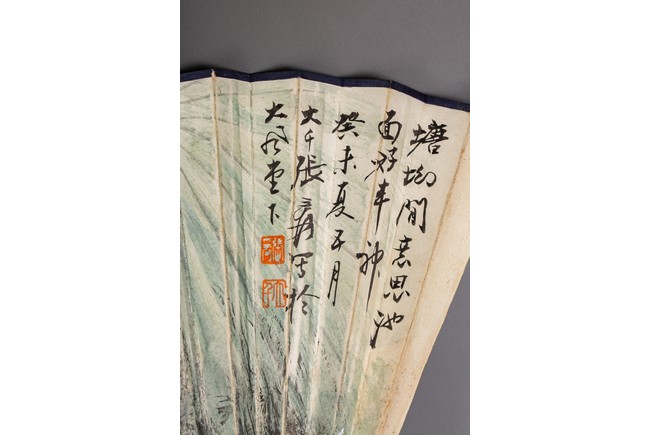 塘坳閒意思池
面好丰神
癸未夏五月
大千張爰寫於
大風堂下
張爰
大千